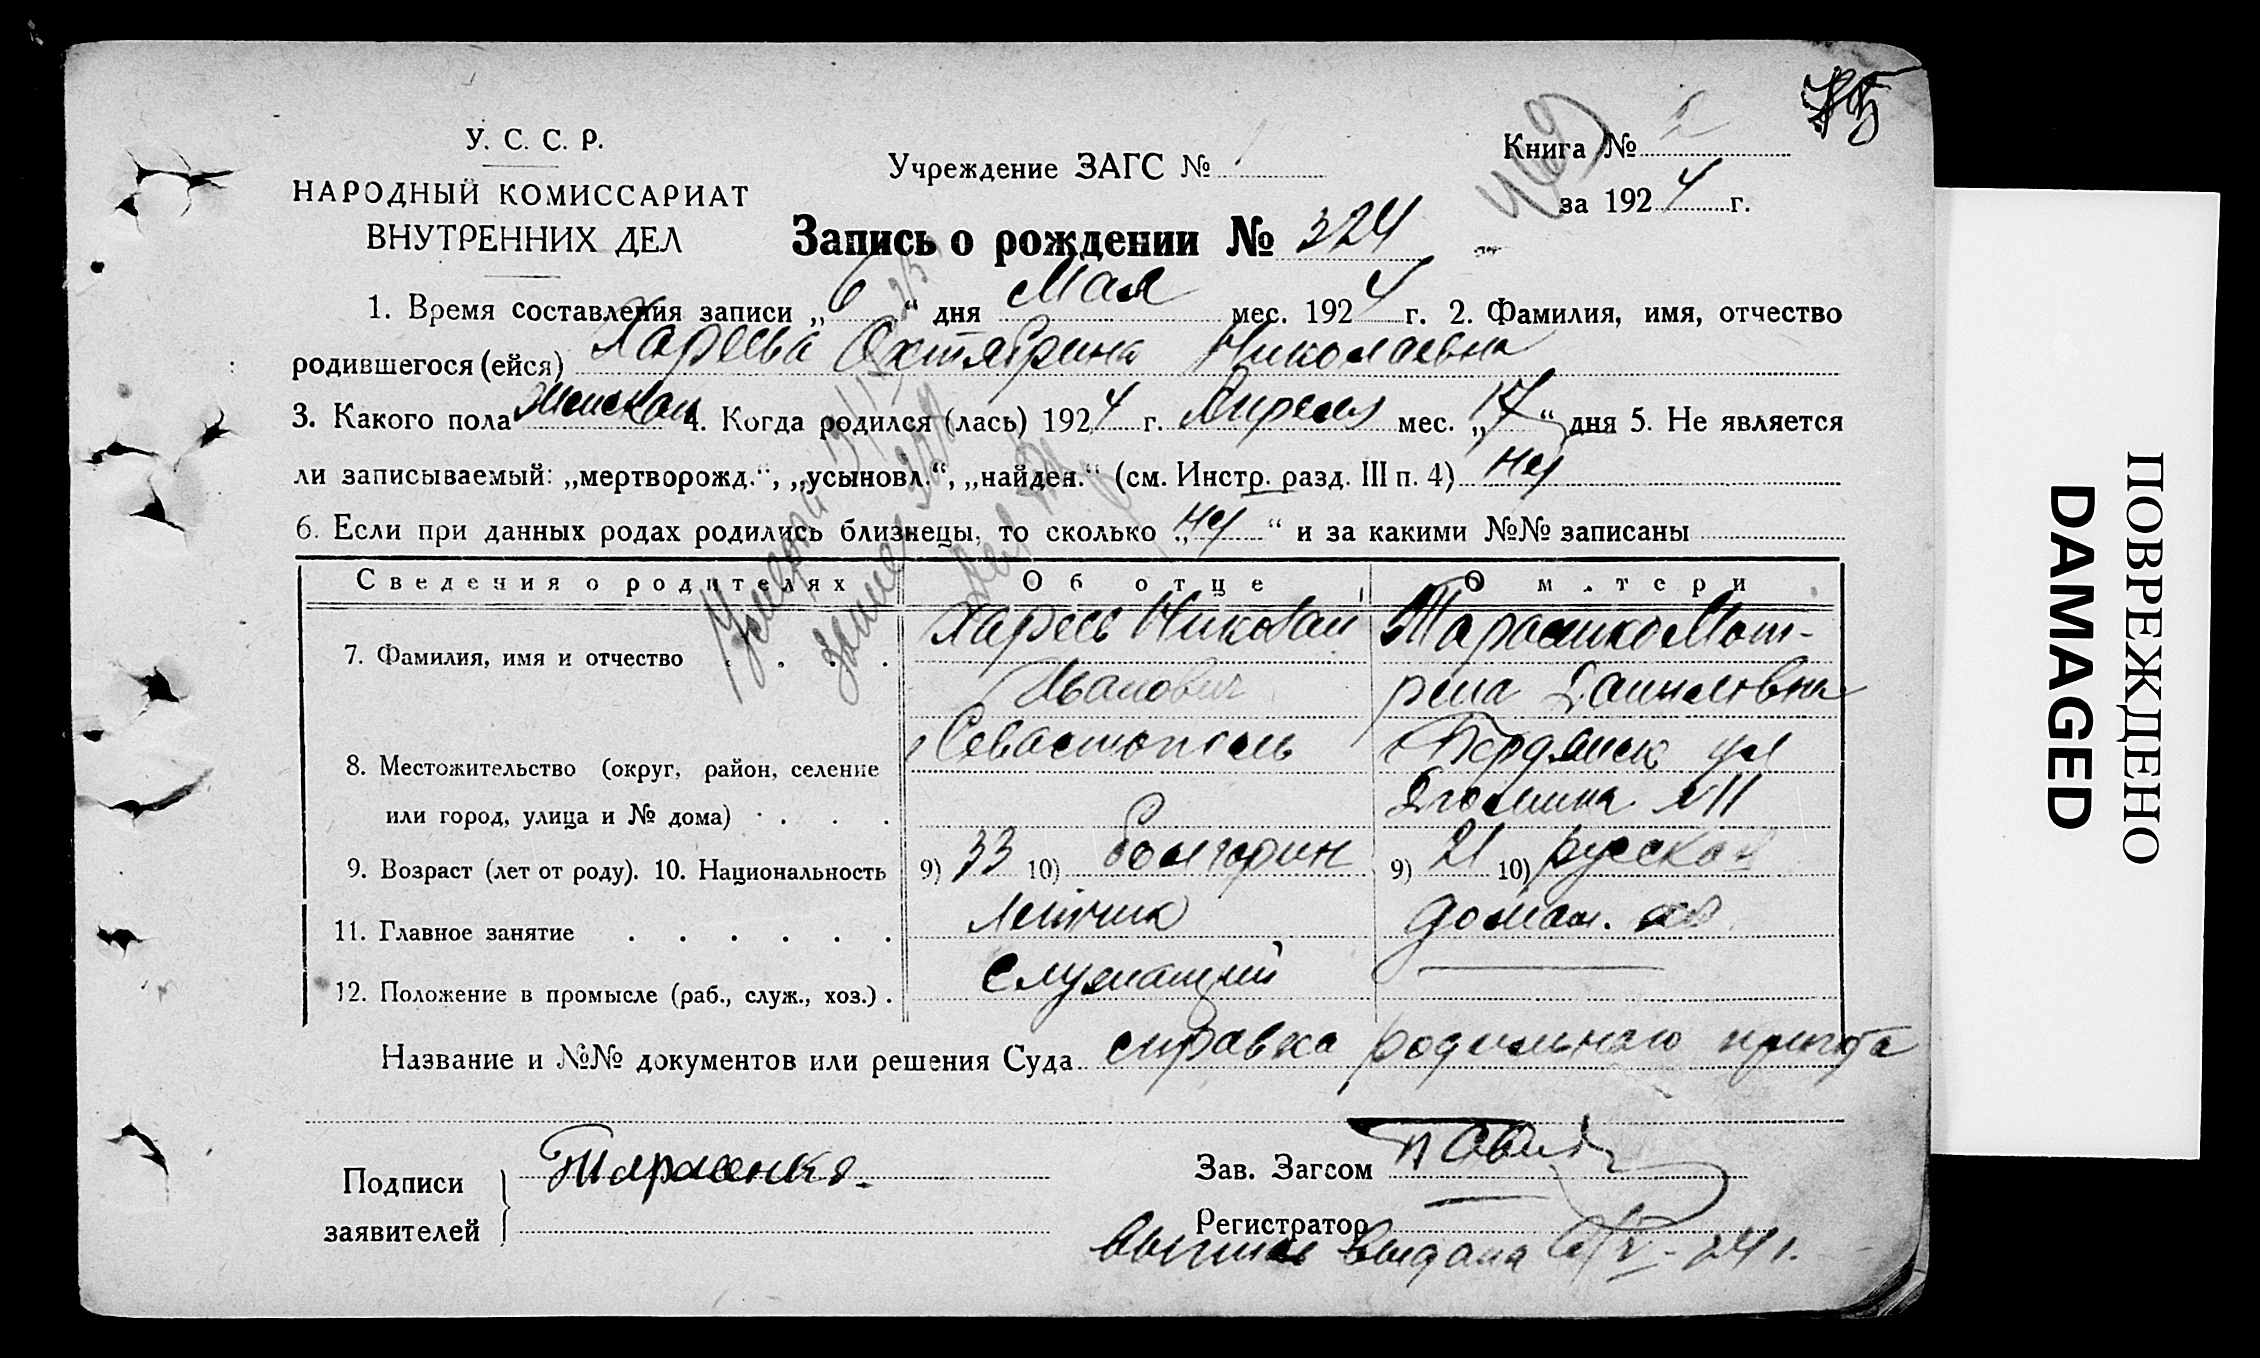 У. С. С. Р.
НАРОДНЫЙ КОМИССАРИАТ
ВНУТРЕННИХ ДЕЛ
Учреждение ЗАГС №
Книга № 2
за 1924 г.
Запись о рождении № 324
1. Время составления записи „6“ дня Мая мес. 1924 г. 2. Фамилия, имя, отчество
родившегося (ейся) Октябрина Николаевна
3. Какого пола Женская 4. Когда родился (лась) 1924 г. Апреля мес. „17“ дня 5. Не является
ли записываемый: „мертворожд.“, „усыновл.“, „найден.“ (см. Инстр. разд. III п. 4) нет
6. Если при данных родах родились близнецы, то сколько „нет“ и за какими №№ записаны
Сведения о родителях Об отце О матери
7. Фамилия, имя и отчество Николай Иванович Тарасенко Мот-
рена Даниловна
8. Местожительство (округ, район, селение Севастополь Бердянск ул
или город, улица и № дома) №11
9. Возраст (лет от роду). 10. Национальность 9) 33 10) болгарин 9) 21 10) русская
11. Главное занятие Летчик домаш. хоз
12. Положение в промысле (раб., служ., хоз.) Служащий
Название и №№ документов или решения Суда справка родильного приюта
Подписи
заявителей
Тарасенко.
Зав. Загсом
Регистратор
Выпись выдана 6/V-24 г.
ПОВРЕЖДЕНО
DAMAGED